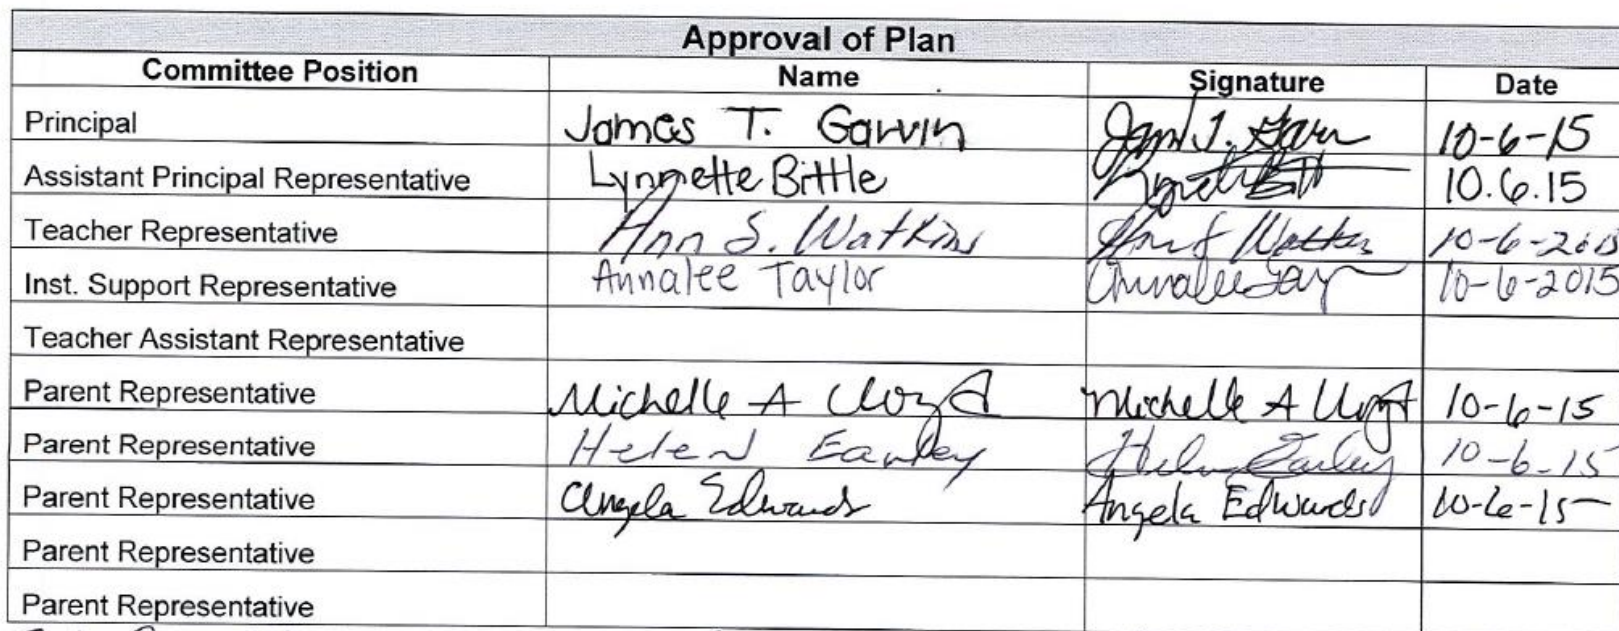 Approval of Plan
Committee Position Name Signature Date
Principal James T. Garvin 10-6-15
Assistant Principal Representative Lynnette Bittle 10.6.15
Teacher Representative Ann S. Watkins 10-6-2015
Inst. Support Representative Annalee Taylor Annalee Tay 10-6-2015
Teacher Assistant Representative
Parent Representative Michelle A Michelle A 10-6-15
Parent Representative Helen Earley Helen Earley 10-6-15
Parent Representative Angela Edwards Angela Edwards 10-6-15
Parent Representative
Parent Representative